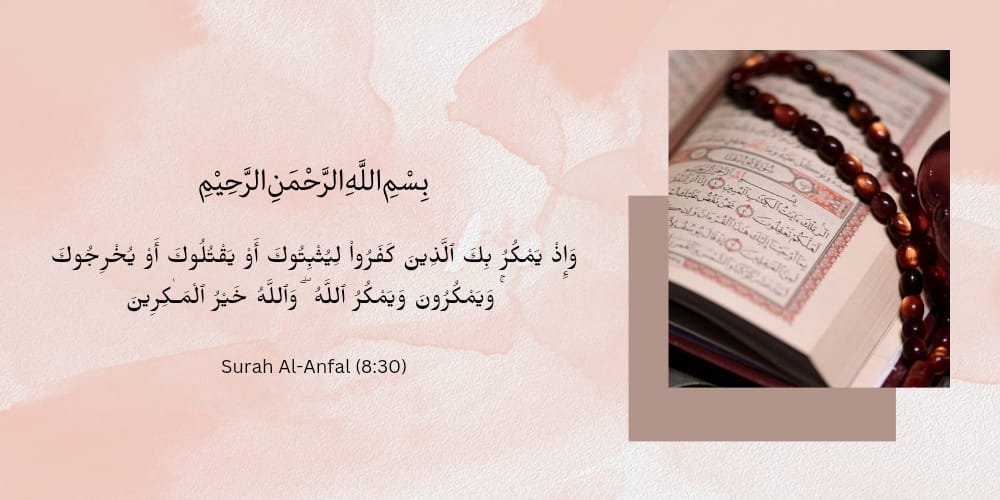 بِسْمِ اللَّهِ الرَّحْمَنِ الرَّحِيْمِ
وَإِذْ يَمْكُرُ بِكَ ٱلَّذِينَ كَفَرُوا۟ لِيُثْبِتُوكَ أَوْ يَقْتُلُوكَ أَوْ يُخْرِجُوكَ
ۚ وَيَمْكُرُون وَيَمْكُرُ ٱللَّهُ ۖ وَٱللَّهُ خَيْرُ ٱلْمَـٰكِرِينَ
Surah Al-Anfal (8:30)